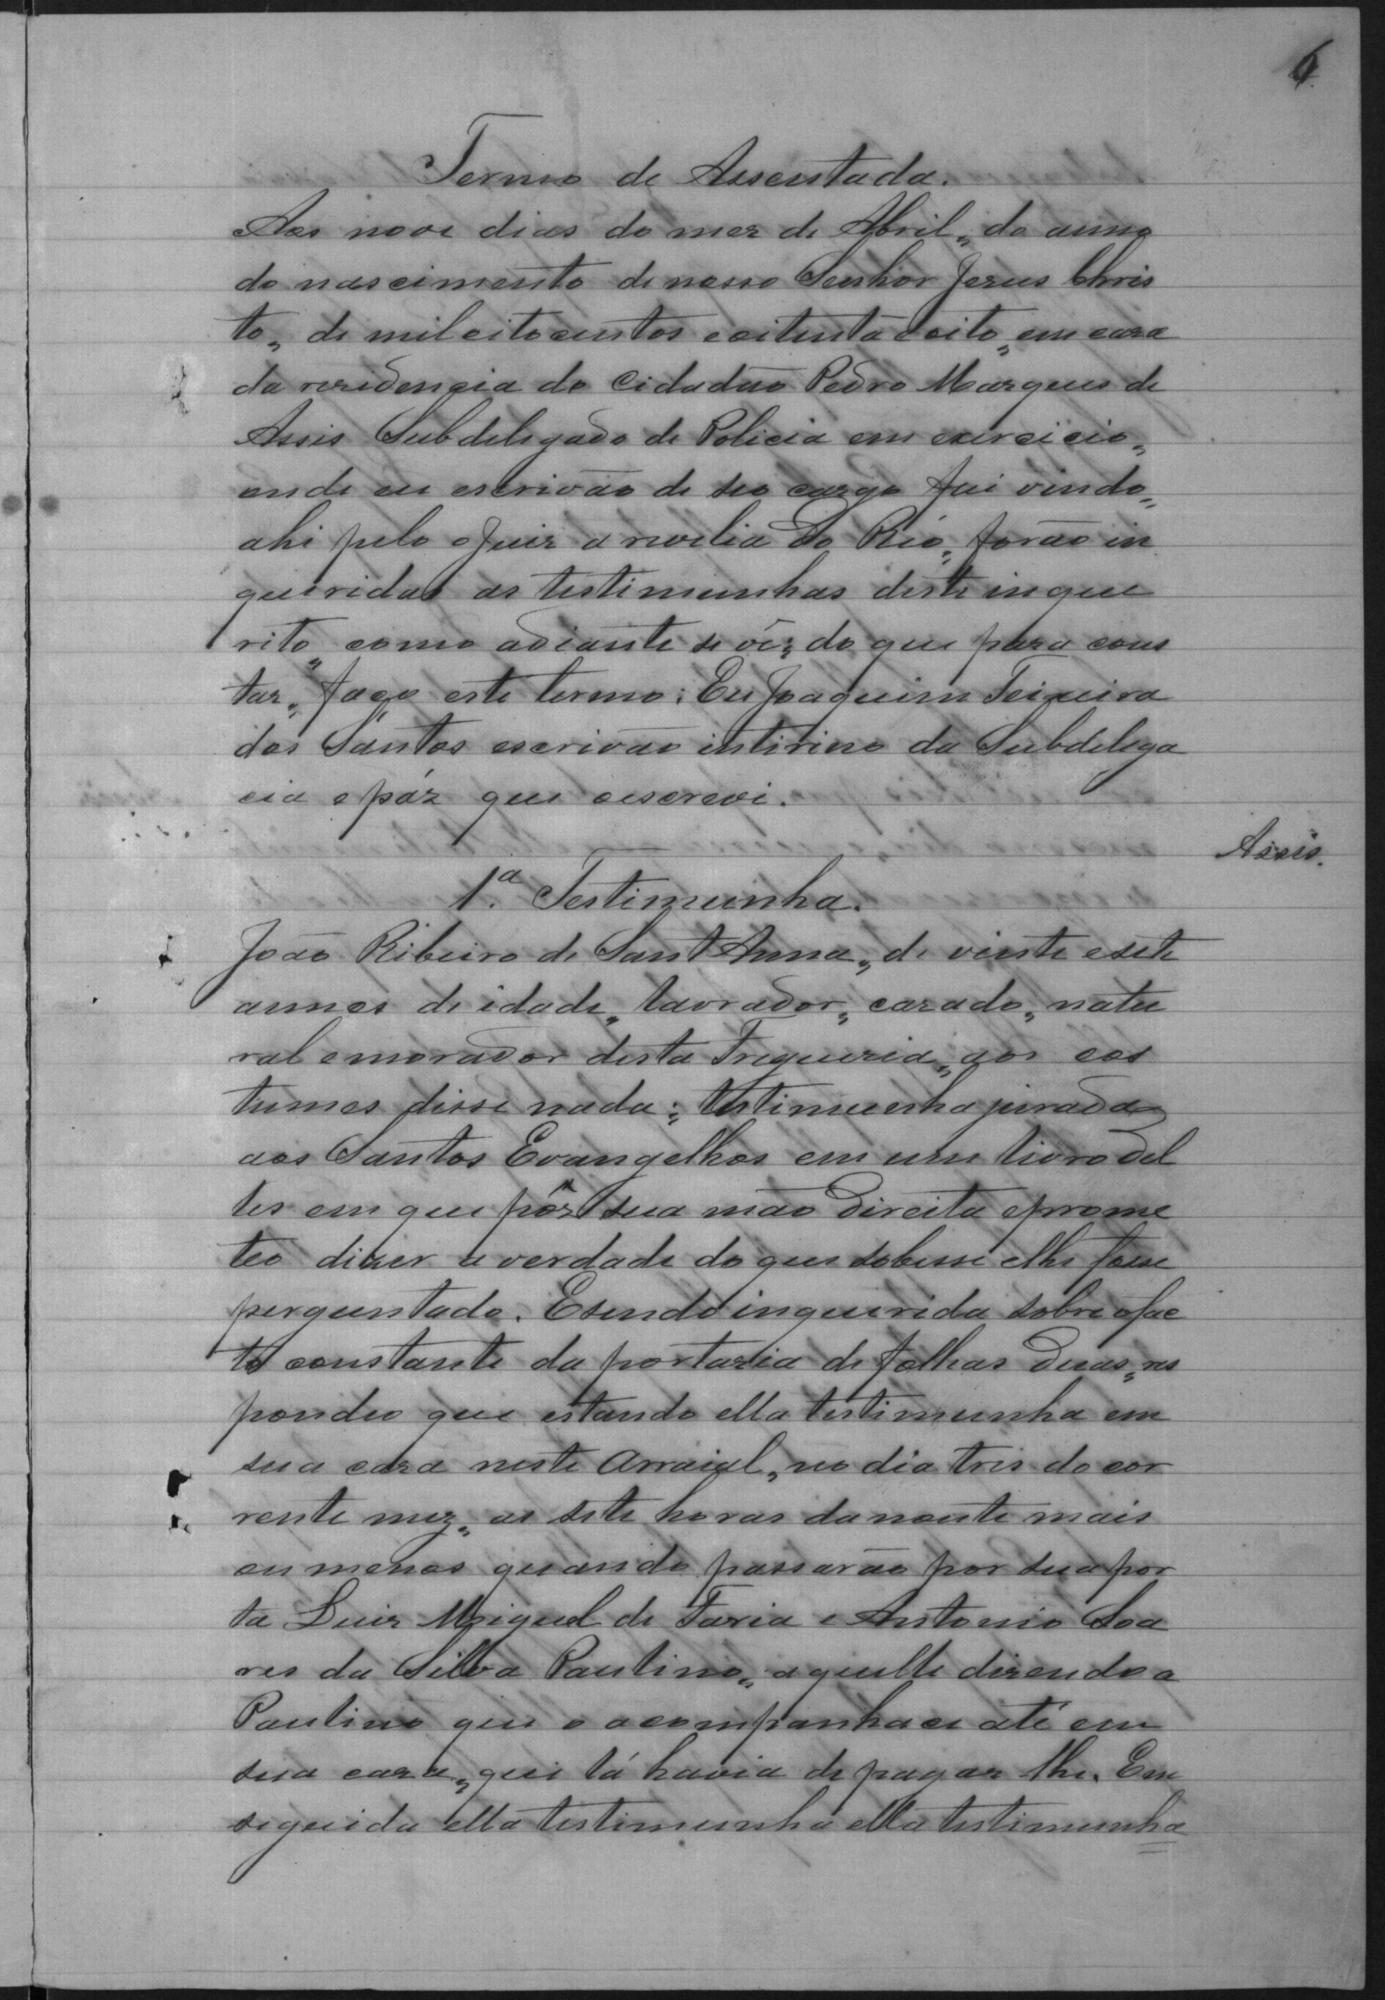 6
Termo de Assentada.
Aos nove dias do mez de Abril, do anno
do nascimento de nosso Senhor Jezus Chris
to, de mil oitocentos e oitenta e oito, em caza
da rezidencia do Cidadão Pedro Marques de
Assis Subdelegado de Policia em exercicio,
onde eu escrivão de seo cargo fui vindo,
ahi pelo Juiz a revelia do Réo, forão in
queridas as testimunhas deste inque
rito, como adiante se vê, do que para cons
tar, faço este termo: Eu Joaquim Teixeira
dos Santos escrivão intirino da Subdelega
cia e páz que escrevi.
Assis.
1ª. Testimunha.
João Ribeiro de Sant Anna, de vinte e sete
annos de idade, lavrador, cazado, natu
ral e morador desta Freguezia, aos cos
tumes disse nada; testimunha jurada
aos Santos Evangelhos em um livro del
les em que pôz sua mão direita e prome
teo dizer a verdade do que sobesse e lhe fosse
perguntado. E sendo inquerida sobre o fac
to constante da portaria de folhas duas, res
pondeo que estando ella testimunha em
sua caza neste Arraial, no dia tres do cor
rente mez, as sete horas da noute mais
ou menos quando passarão por sua por
ta Luiz Miguel de Faria e Antonio Soa
res da Silva Paulino, aquelle dizendo a
Paulino que o acompanhace até em
sua caza, que lá havia de pagar lhe. Em
seguida ella testimunha ella testimunha